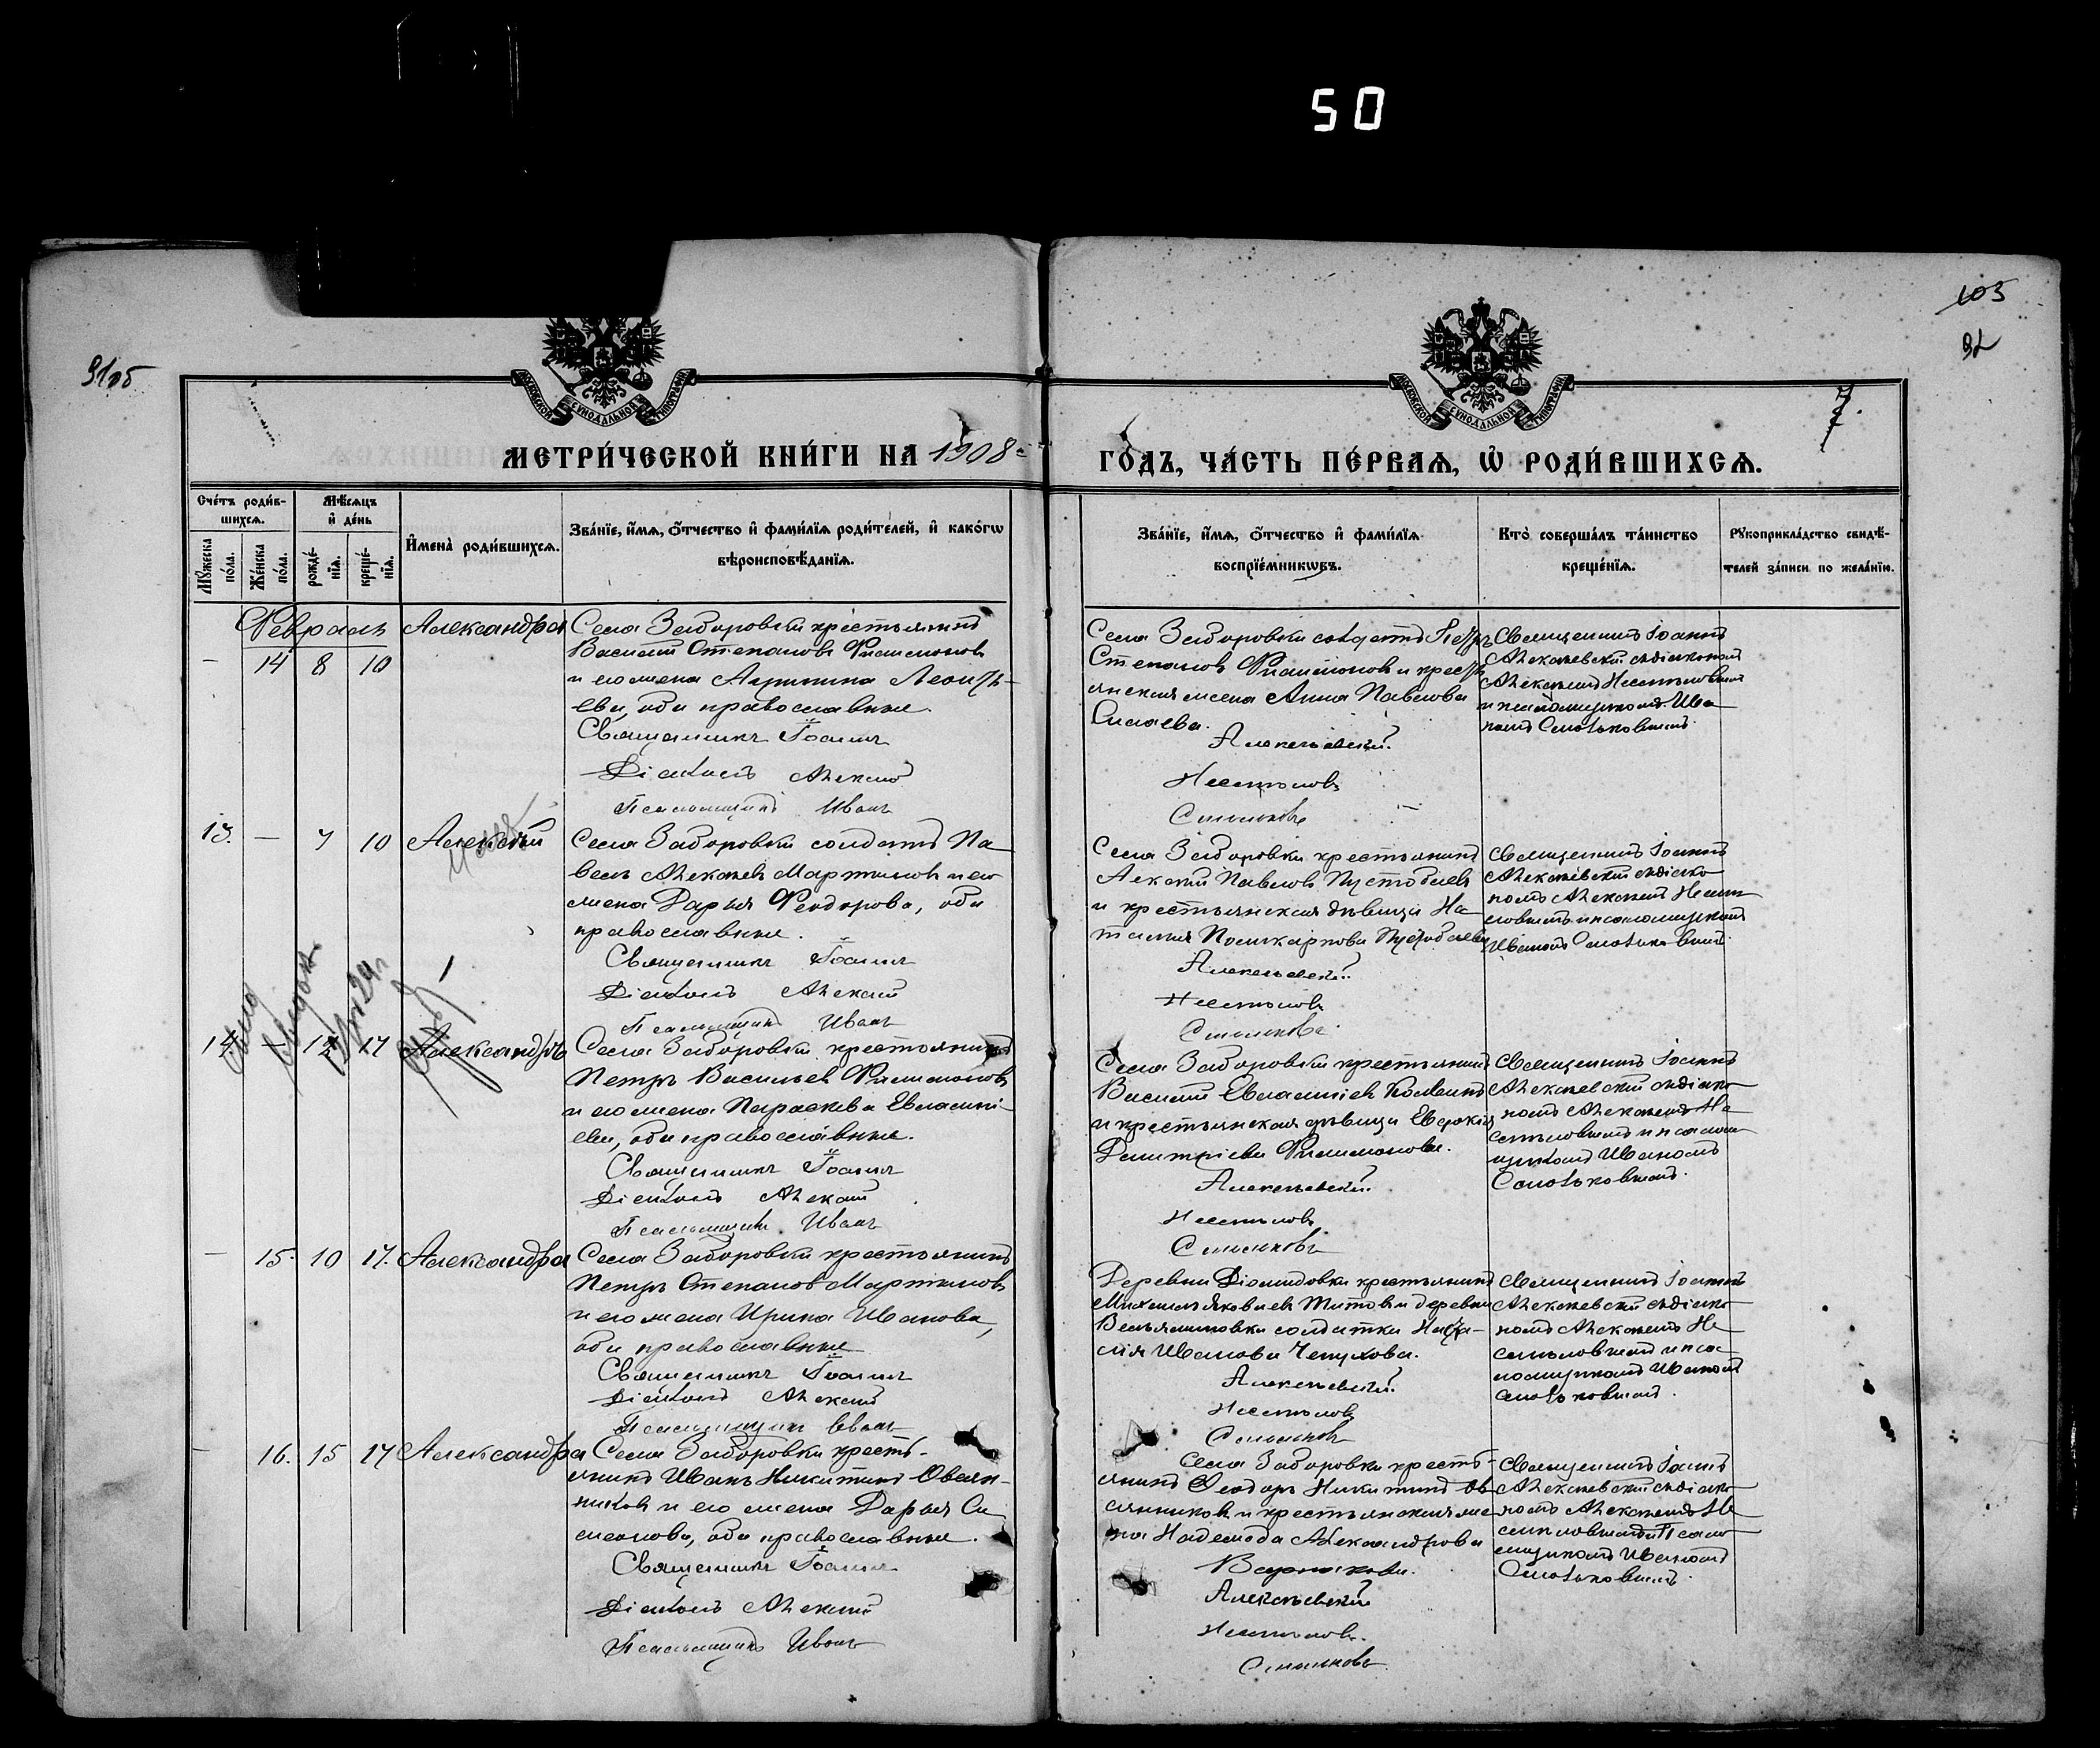 50
105
92
91об
7.
МОСКОВСКОЙ СУНОДАЛЬНОЙ ТИПОГРАФІИ
МОСКОВСКОЙ СУНОДАЛЬНОЙ ТИПОГРАФІИ
МЕТРИ́ЧЕСКОЙ КНИ́ГИ НА 1908
ГО́ДЪ, ЧА́СТЬ ПЕ́РВАѦ, Ѡ҆ РОДИ́ВШИХСѦ.
Сче́тъ роди́в-
шихсѧ.
Мѣ́сѧцъ
и҆ де́нь
Мꙋ́жеска
по́ла.
Же́нска
по́ла.
рожде́-
нїѧ.
креще́-
нїѧ.
И҆мена̀ роди́вшихсѧ.
Зва́нїе, и҆́мѧ, ѻ҆́тчество и҆ фами́лїѧ роди́телей, и҆ како́гѡ
вѣроисповѣ́данїѧ.
Зва́нїе, и҆́мѧ, ѻ҆́тчество и҆ фами́лїѧ
воспрїе́мникѡвъ.
Кто̀ соверша́лъ та́инство
креще́нїѧ.
Рꙋкоприкла́дство свидѣ́-
телей за́писи по жела́нїю.
Февраль
— 14 8 10 Александра
Села Заборовки крестьянинъ
Василій Степановъ Филимоновъ
и его жена Агрипина Леонть-
ева, оба православные.
Священникъ Іоаннъ
Діаконъ Алексій
Псаломщикъ Иванъ
Села Заборовки солдатъ Петръ
Степановъ Филимоновъ и кресть
янская жена Анна Павлова
Алексѣевскій
Несмѣловъ
Смольковъ
Священникъ Іоаннъ
Алексѣевскій съ діакономъ
Алексѣемъ Несмѣловымъ
и псаломщикомъ Ива
номъ Смольковымъ.
13. — 7 10 Алексѣй
Села Заборовки солдатъ Па-
велъ Алексѣевъ Мартыновъ и его
жена Дарья Феодорова, оба
православные.
Священникъ Іоаннъ
Діаконъ Алексій
Псаломщикъ Иванъ
Села Заборовки крестьянинъ
Алексій Павловъ Пустобаевъ
и крестьянская дѣвица На-
талия Поликарпова Пустобаева
Алексѣевскій
Несмѣловъ
Смольковъ
Священникъ Іоаннъ
Алексѣевскій съ діако
номъ Алексѣемъ Несмѣ
ловымъ и псаломщикомъ
Иваномъ Смольковымъ.
14 — 14 17 Александръ
Села Заборовки крестьянинъ
Петръ Васильевъ Филимоновъ
и его жена Параскева Евлампі-
ева, оба православные.
Священникъ Іоаннъ
Діаконъ Алексій
Псаломщикъ Иванъ
Села Заборовки крестьянинъ
и крестьянская дѣвица Евдокія
Димитріева Филимонова.
Алексѣевскій
Несмѣловъ
Смольковъ
Священникъ Іоаннъ
Алексѣевскій съ діако
номъ Алексѣемъ Не
смѣловымъ и псалом
щикомъ Иваномъ
Смольковымъ.
— 15. 10 17. Александра
Села Заборовки крестьянинъ
Петръ Степановъ Мартыновъ
и его жена Ирина Иванова,
оба православные
Священникъ Іоаннъ
Діаконъ Алексій
Псаломщикъ Иванъ
Деревни Діомидовки крестьянинъ
Михаилъ Яковлевъ Титовъ и деревни
солдатка Ната-
лія Иванова
Алексѣевскій
Несмѣловъ
Смольковъ
Священникъ Іоаннъ
Алексѣевскій съ діако
номъ Алексѣемъ Не
смѣловымъ и пса
ломщикомъ Иваномъ
Смольковымъ.
— 16. 15 17 Александра
Села Заборовки кресть-
янинъ Иванъ Никитинъ Овсян-
никовъ и его жена Дарья Си-
меонова, оба православные.
Священникъ Іоаннъ
Діаконъ Алексій
Псаломщикъ Иванъ
Села Заборовки кресть-
янинъ Феодоръ Никитинъ Ов
сянниковъ и крестьянская же
на Надежда Александрова
Алексѣевскій
Несмѣловъ.
Смольковъ
Священникъ Іоаннъ
Алексѣевскій съ діако
номъ Алексѣемъ Не
смѣловымъ и Псалом
щикомъ Иваномъ
Смольковымъ.